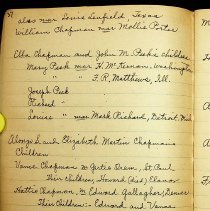 57
also mar Louis Benfield, Texas
William Chapman mar Mollie Porter
Ella Chapman and John M. Peske children
Mary Peek mar H. McKernan, Washington
" " F.R. Matthews, Ill.
Joseph Peek
Richard "
Louise " mar Mark Richard, Detroit, Mich
Alonzo L and Elizabeth Martin Chapman's
Children
Vance Chapman m Gertie Drem, St. Paul
Their Children; Howard (dies) Eleanor
Hattie Chapman m Edward Gallagher, Denver
Their Children:- Edward and Vance